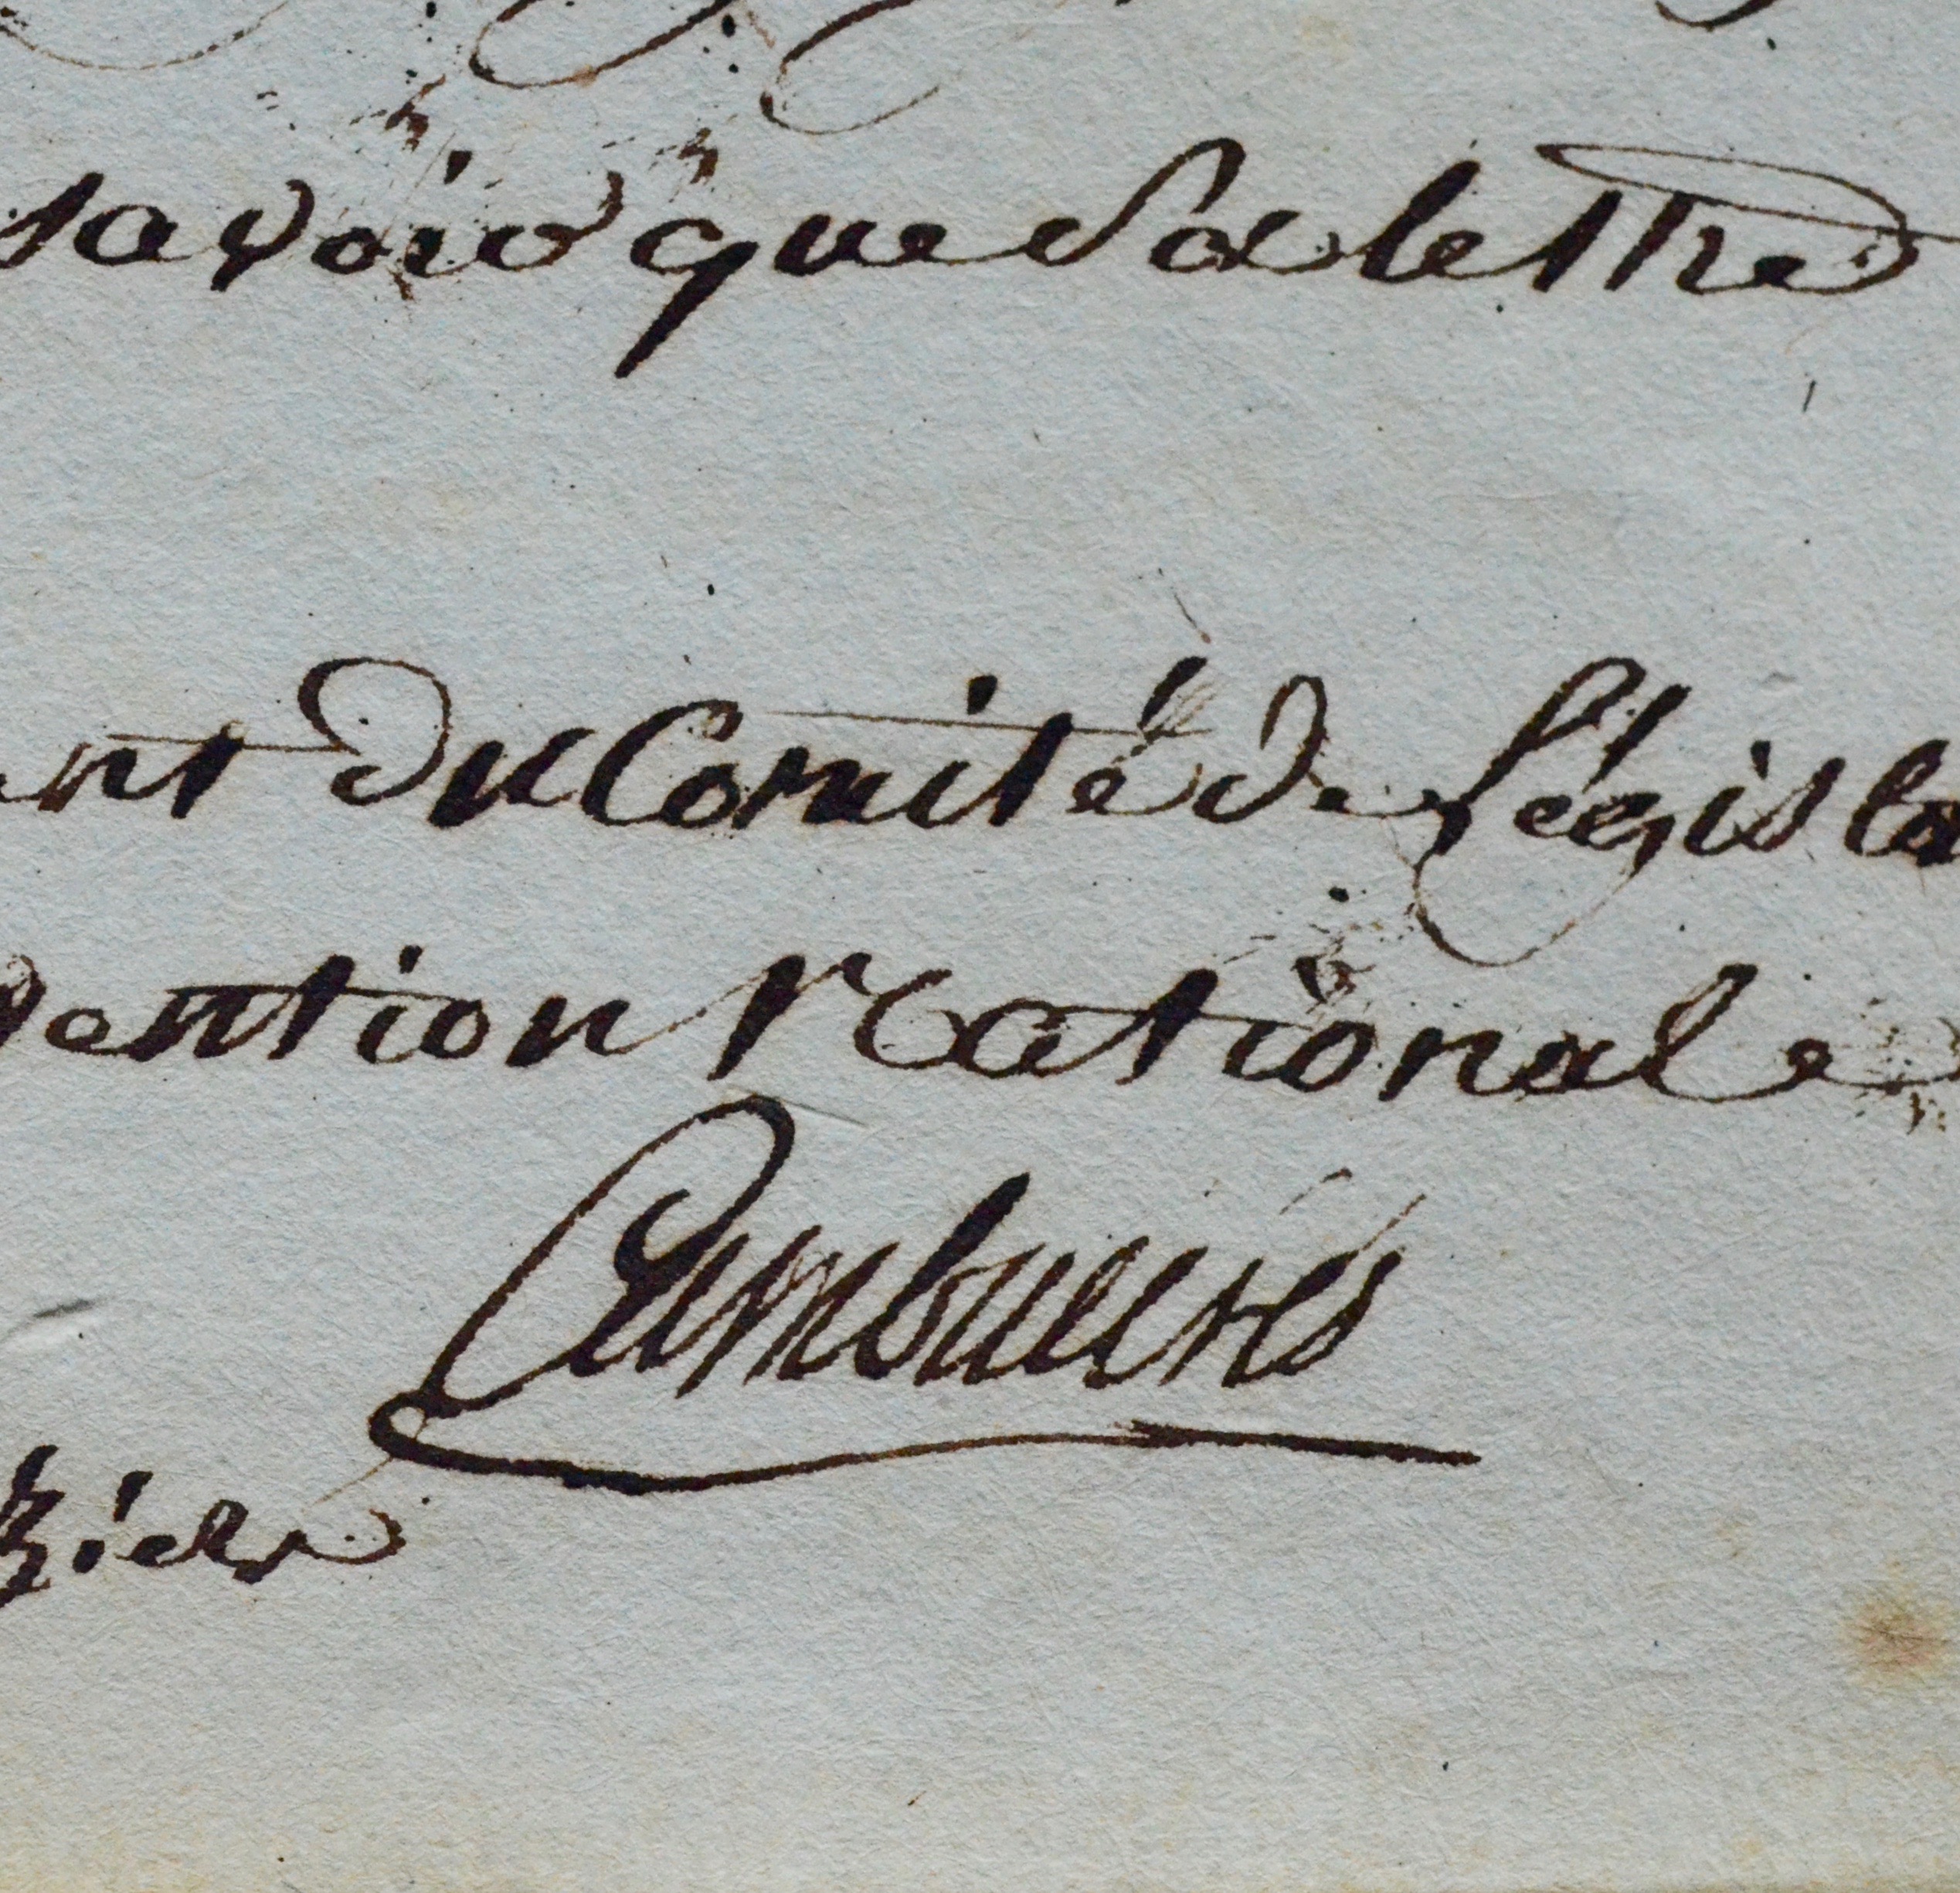 savoir que Sa lettre
nt du Comité de Législa
vention Nationale
Cambacérès